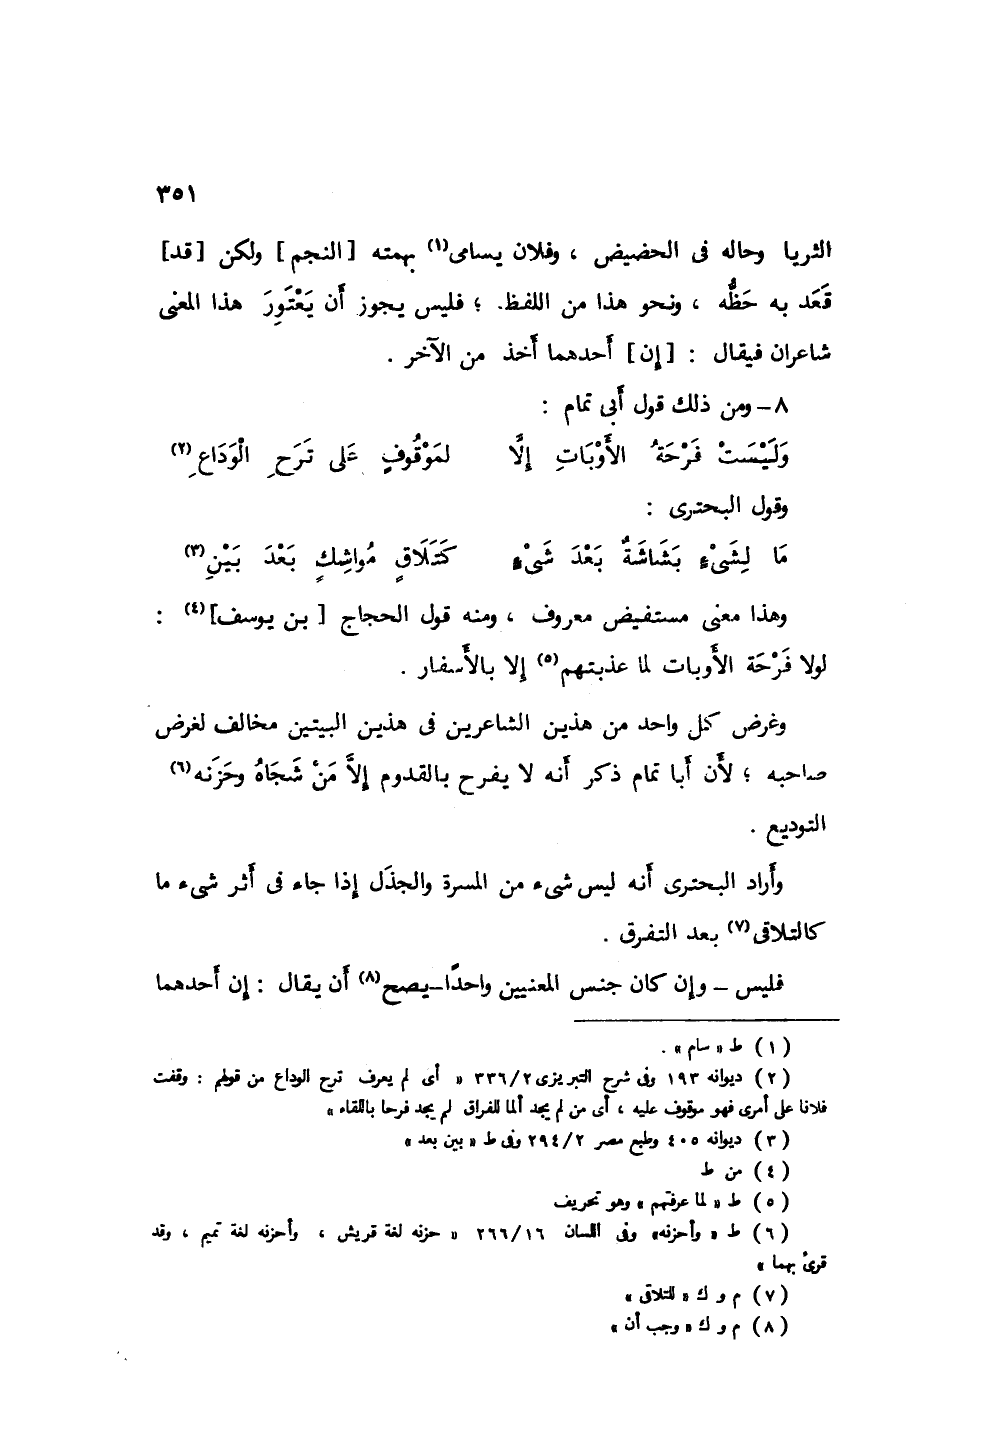 ٣٥١
الثريا وحاله فى الحضيض ، وفلان يسامى(١) بهمته [ النجم ] ولكن [ قد ]
قَعَد به حَظُّه ، ونحو هذا من اللفظ. ؛ فليس يجوز أَن يَعْتَوِرَ هذا المعنى
شاعران فيقال : [ إِن ] أَحدهما أَخذ من الآخر .
٨ – ومن ذلك قول أَبى تمام :
وَلَيْسَتْ فَرْحَةُ الأَوْبَاتِ إِلَّا لمَوْقُوفٍ عَلى تَرَحِ الْوَدَاعِ(٢)
وقول البحترى :
مَا لِشَىْءٍ بَشَاشَةٌ بَعْدَ شَىْءٍ كَتَلَاقٍ مُواشِكٍ بَعْدَ بَيْنِ(٣)
وهذا معنى مستفيض معروف ، ومنه قول الحجاج [ بن يوسف ](٤) :
لولا فَرْحَة الأَوبات لما عذبتهم(٥) إلا بالأَسفار .
وغرض كل واحد من هذين الشاعرين فى هذين البيتين مخالف لغرض
صاحبه ؛ لأَن أَبا تمام ذكر أَنه لا يفرح بالقدوم إِلاَّ مَنْ شَجَاهُ وحَزَنه(٦)
التوديع .
وأَراد البحترى أَنه ليس شىء من المسرة والجذَل إِذا جاء فى أَثر شىء ما
كالتلاقى(٧) بعد التفرق .
فليس – وإِن كان جنس المعنيين واحدًا – يصح(٨) أَن يقال : إِن أَحدهما
(١) ط « سام » .
(٢) ديوانه ١٩٣ وفى شرح التبريزى ٣٣٦/٢ « أى لم يعرف ترح الوداع من قولهم : وقفت
فلانا على أمرى فهو موقوف عليه ، أى من لم يجد ألما للفراق لم يجد فرحا باللقاء »
(٣) ديوانه ٤٠٥ وطبع مصر ٢٩٤/٢ وفى ط « بين بعد »
(٤) من ط
(٥) ط « لما عرفتهم » وهو تحريف
(٦) ط « وأحزنه» وفى اللسان ٢٦٦/١٦ « حزنه لغة قريش ، وأحزنه لغة تميم ، وقد
قرئ بهما »
(٧) م و ك « للتلاقى »
(٨) م و ك « وجب أن »